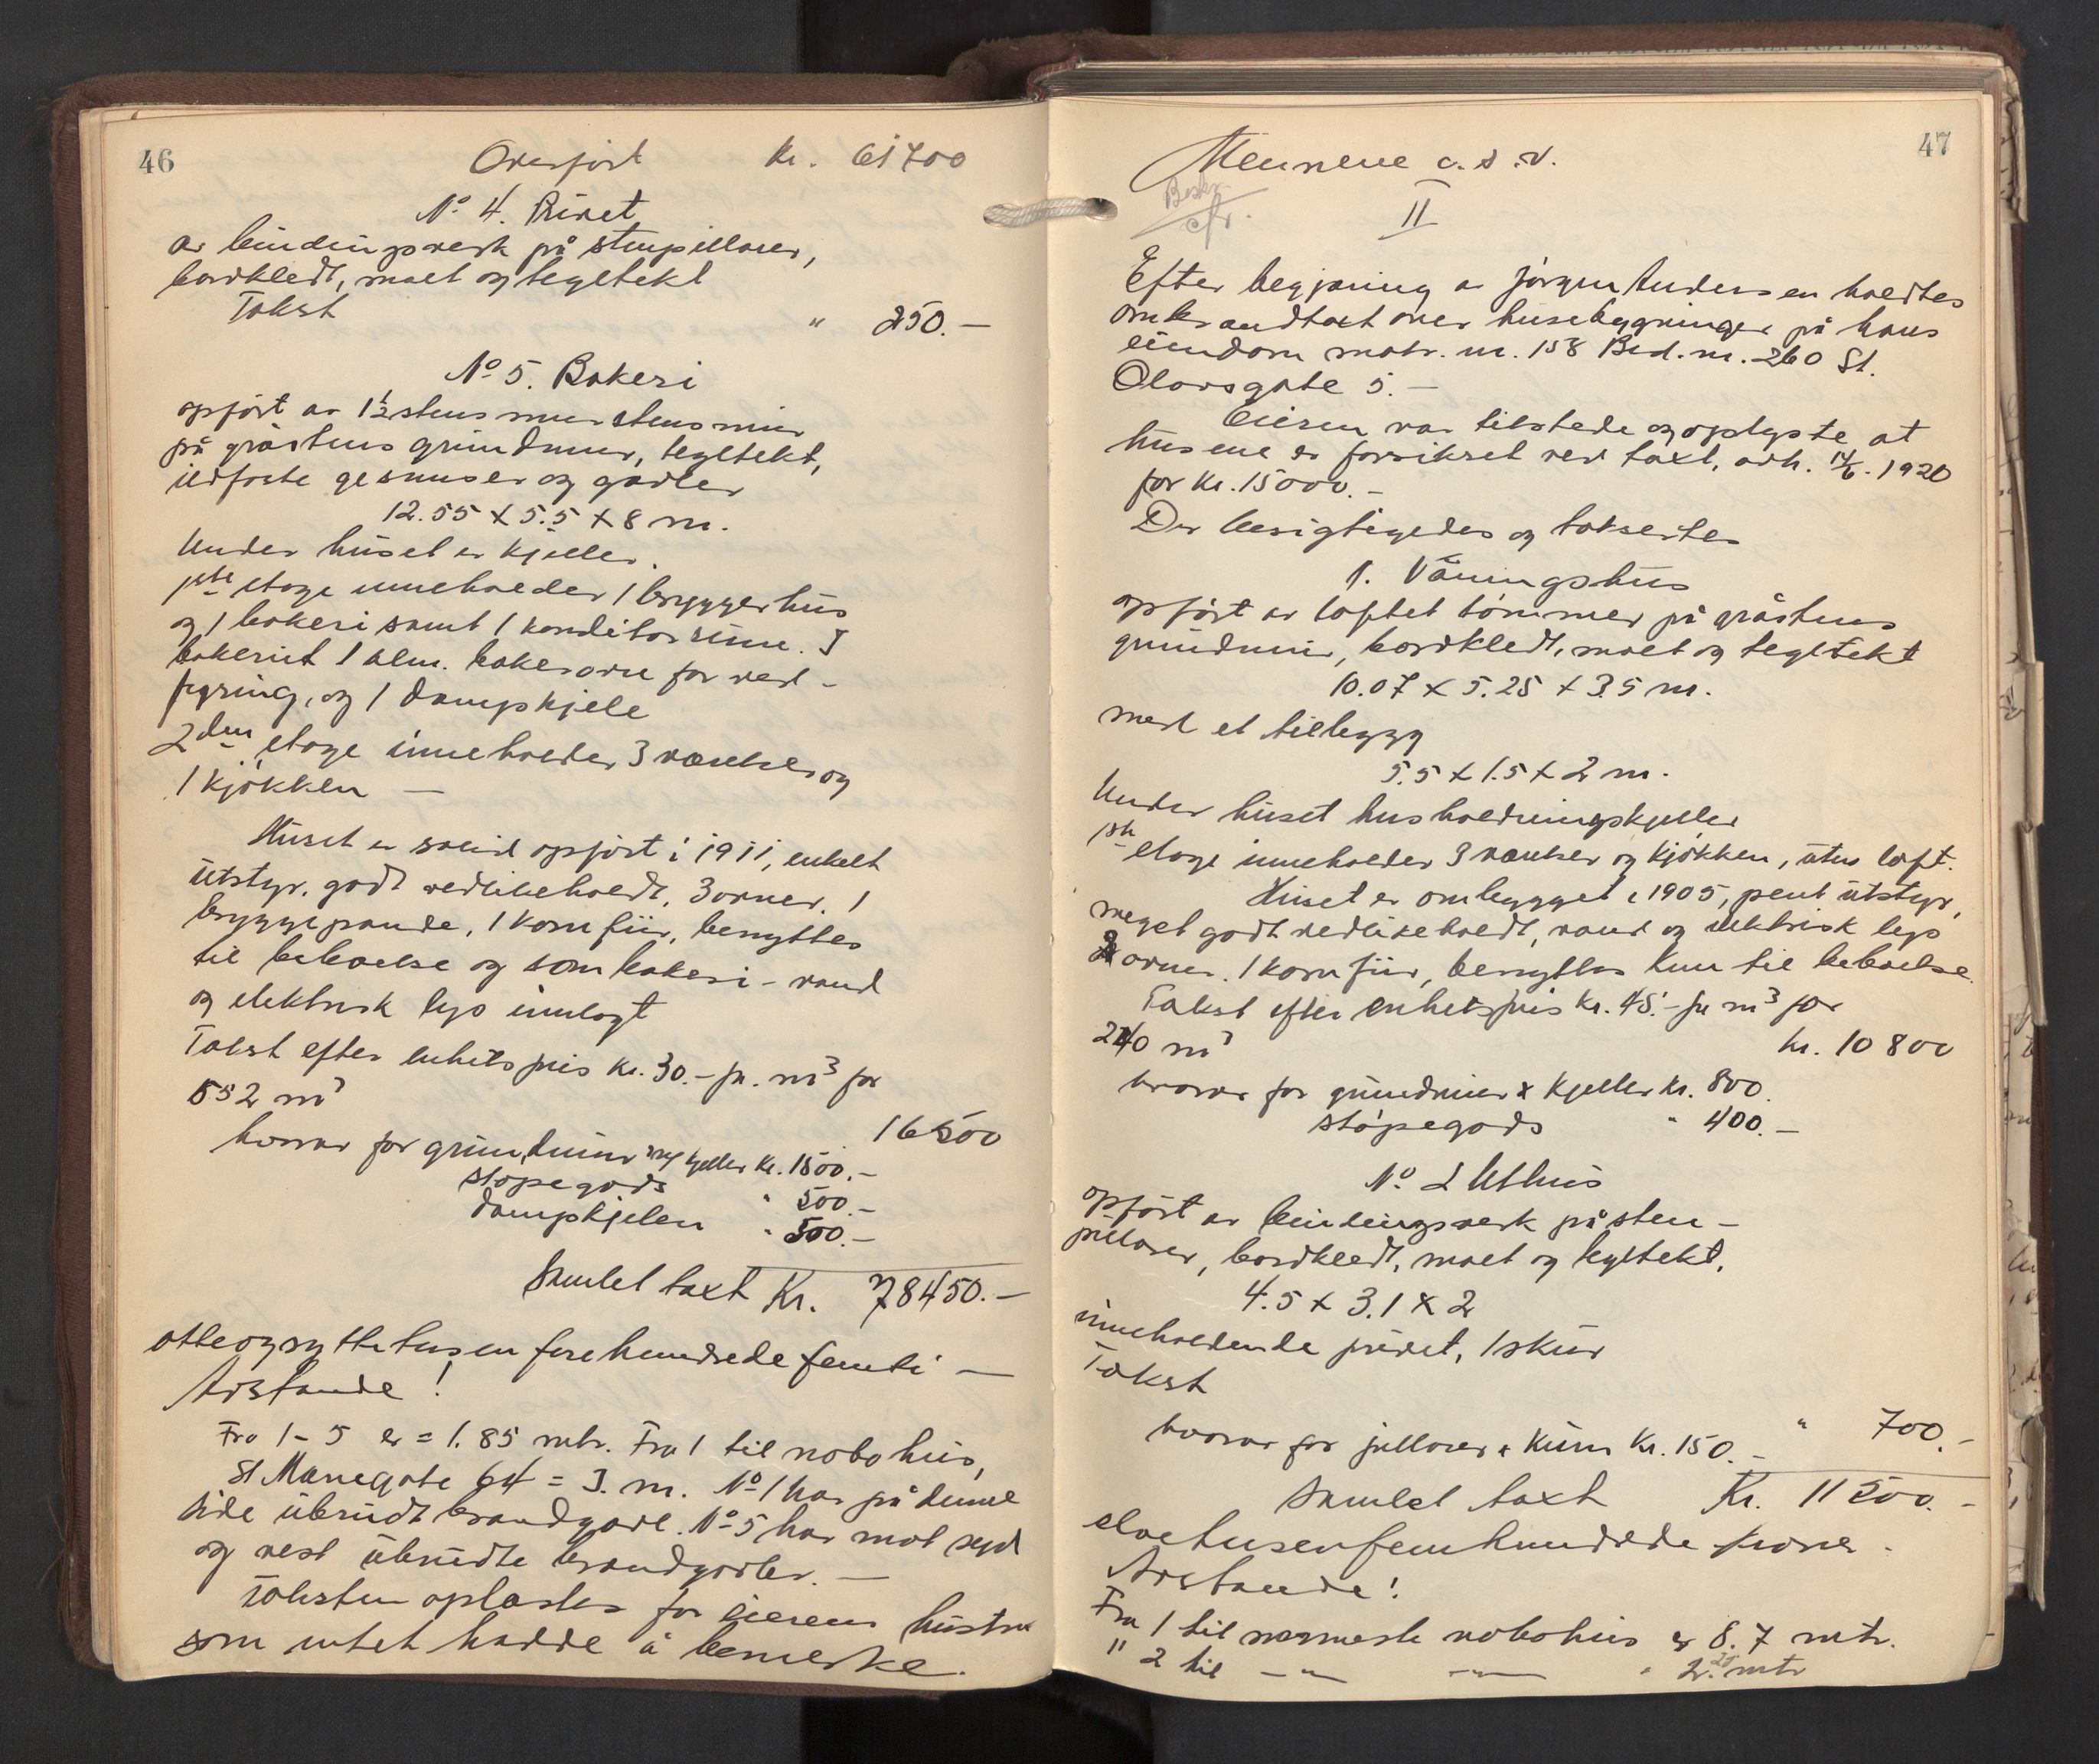 46
Overført Kr. 61700
No 4. Privet
av bindingsverk på stenpillarer,
bordkledt, malt og tegltekt
Takst " 250.-
No 5. Bakeri
opført av 1½ stens murstensmur
på gråstens grundmur, tegltekt,
utforte gesimser og gavler
12.55 x 5.5 x 8 m.
Under huset er kjeller.
1ste etage inneholder 1 bryggerhus
og 1 bakeri samt 1 konditorrum. I
bakeriet 1 alm. bakerovn for ved-
fyring, og 1 dampkjele
2den etage inneholder 3 værelser og
1 kjøkken -
Huset er solid opført i 1911, enkelt
utstyr. godt vedlikeholdt. 3 ovner. 1
bryggepande, 1 komfur, benyttes
til beboelse og som bakeri - vand
og elektrisk lys innlagt
Takst efter enhetspris Kr. 30.- pr. m3 for
552 m3
16500
hvorav for grundmur m/ kjeller Kr. 1500.-
støpegods " 500.-
dampkjelen " 500.-
Samlet taxt Kr. 78450.-
otteogsyttitusen firehundrede femti -
Avstande!
Fra 1 - 5 er = 1.85 mtr. Fra 1 til nabohus,
St Mariegate 64 = 3. m. No 1 har på denne
side ubrudt brandgavl. No 5 har mot syd
og vest ubrudte brandgavler. -
Taksten oplæstes for eierens hustru
som intet hadde å bemerke.
47
Mennene c. s. v.
Beskr.
cfr.
II
Efter begjæring av Jørgen Andersen holdtes
ombrandtaxt over husebygninger på hans
eiendom matr. nr. 158 Brd. nr. 260 St.
Olavsgate 5. -
Eieren var tilstede og oplyste at
husene er forsikret ved taxt, avh. 14/6. 1920
for Kr. 15000.-
Der besigtigedes og taksertes
1. Våningshus
opført av laftet tømmer på gråstens
grundmur, bordkledt, malt og tegltekt
10.07 x 5.25 x 3.5 m.
med et tilbygg
5.5 x 1.5 x 2 m.
Under huset husholdningskjeller
1ste etage inneholder 3 værelser og kjøkken, uten loft.
Huset er ombygget i 1905, pent utstyr,
meget godt vedlikeholdt, vand og elektrisk lys
2 ovner. 1 komfur, benyttes kun til beboelse.
Takst efter enhetspris Kr. 45.- pr m3 for
240 m3 Kr. 10 800
hvorav for grundmur & kjeller Kr. 800.
støpegods " 400.-
No. 2 Uthus
opført av bindingsverk på sten-
pillarer, bordkledt, malt og tegltekt.
4.5 x 3.1 x 2
inneholdende privet, 1 skur
Takst
" 700.-
hvorav for pillarer & kum Kr. 150.-
Samlet taxt Kr. 11500.-
elvetusenfemhundrede kroner.
Avstande!
Fra 1 til nærmeste nabohus er 8.7 mtr.
" 2 til - " - - " - " 2.25 mtr